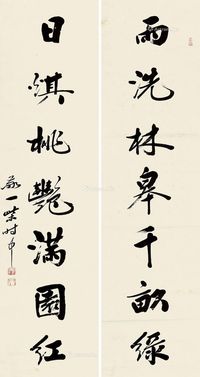 雨洗林皋千畝綠
日烘桃艷滿園紅